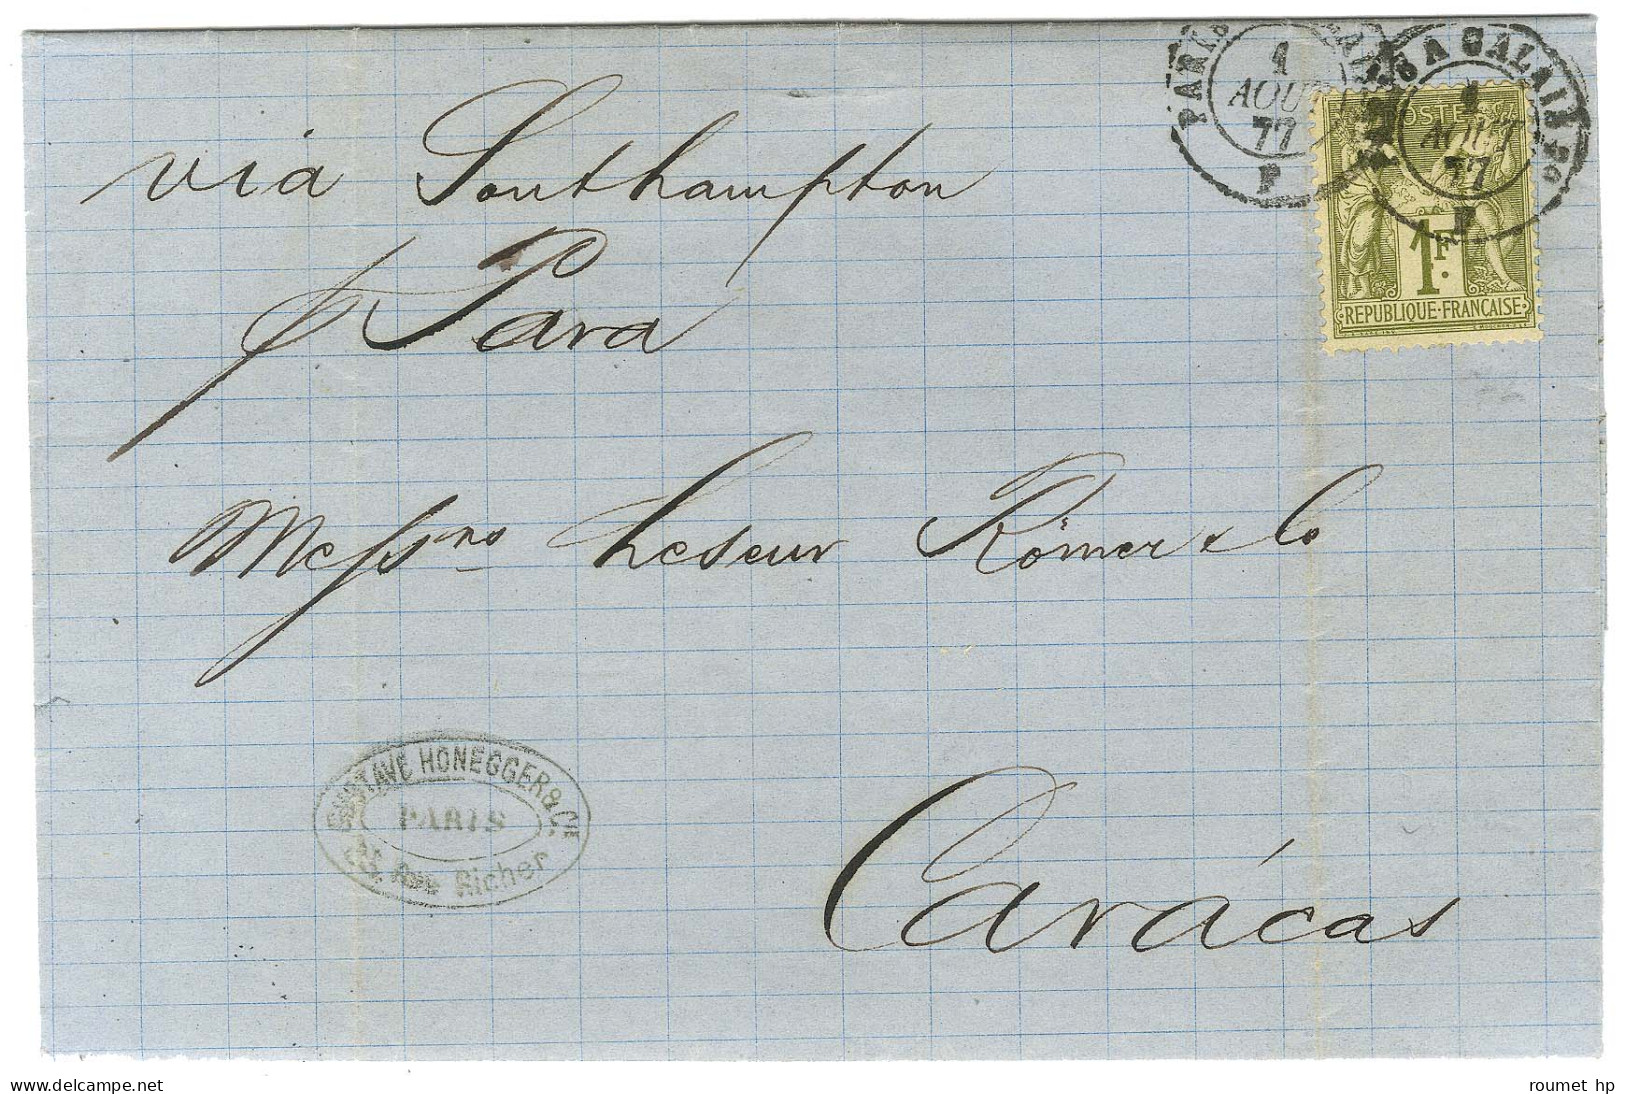 PARIS A CALAIS
1
AOUT
77
F
PARIS A CALAIS
1
AOUT
77
F
POSTES
1F.
REPUBLIQUE·FRANÇAISE
via Southampton
p Para
Messrs Leseur Römer & Co
GUSTAVE HONEGGER & CIE
PARIS
Rue Richer
Carácas
roumet hp